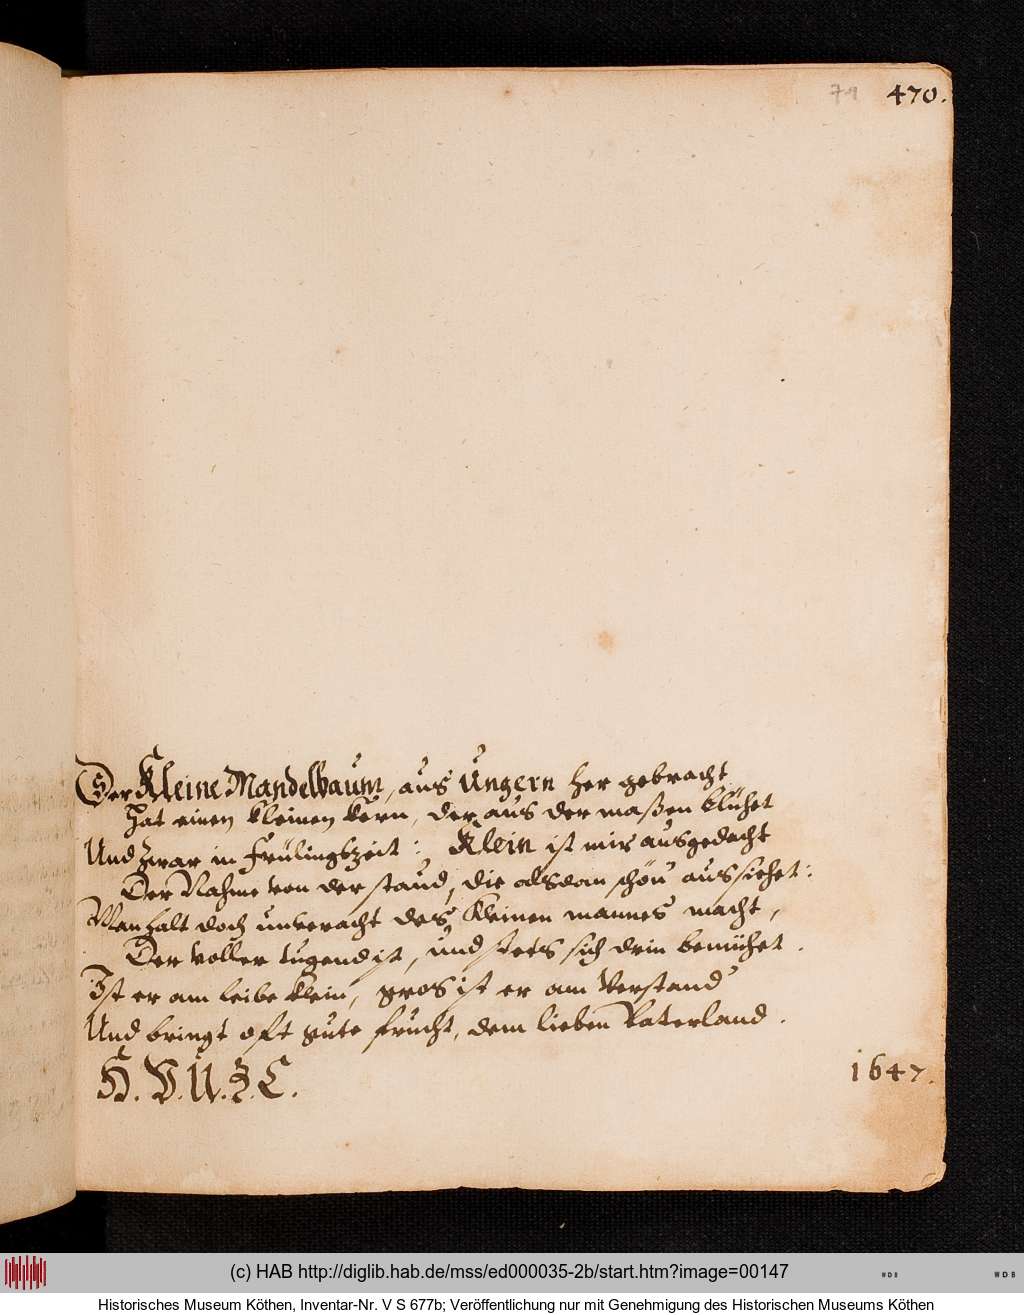 71 470.
Der Kleine Mandelbaum, aus Ungern her gebracht
Hat einen kleinen kern, der aus der maßen blühet
Und zwar in Frülingszeit: Klein ist mir ausgedacht
Der Nahme von der staud, die alsdan schön aussiehet:
Man halt doch unveracht des Kleinen mannes macht,
Der voller tugend ist, und stets sich drin bemühet.
Ist er am leibe klein, gros ist er am Verstand
Und bringt oft gute frucht, dem lieben Vaterland.
H. V. U. Z. C.
1647.
(c) HAB http://diglib.hab.de/mss/ed000035-2b/start.htm?image=00147
WDB
WDB
Historisches Museum Köthen, Inventar-Nr. V S 677b; Veröffentlichung nur mit Genehmigung des Historischen Museums Köthen